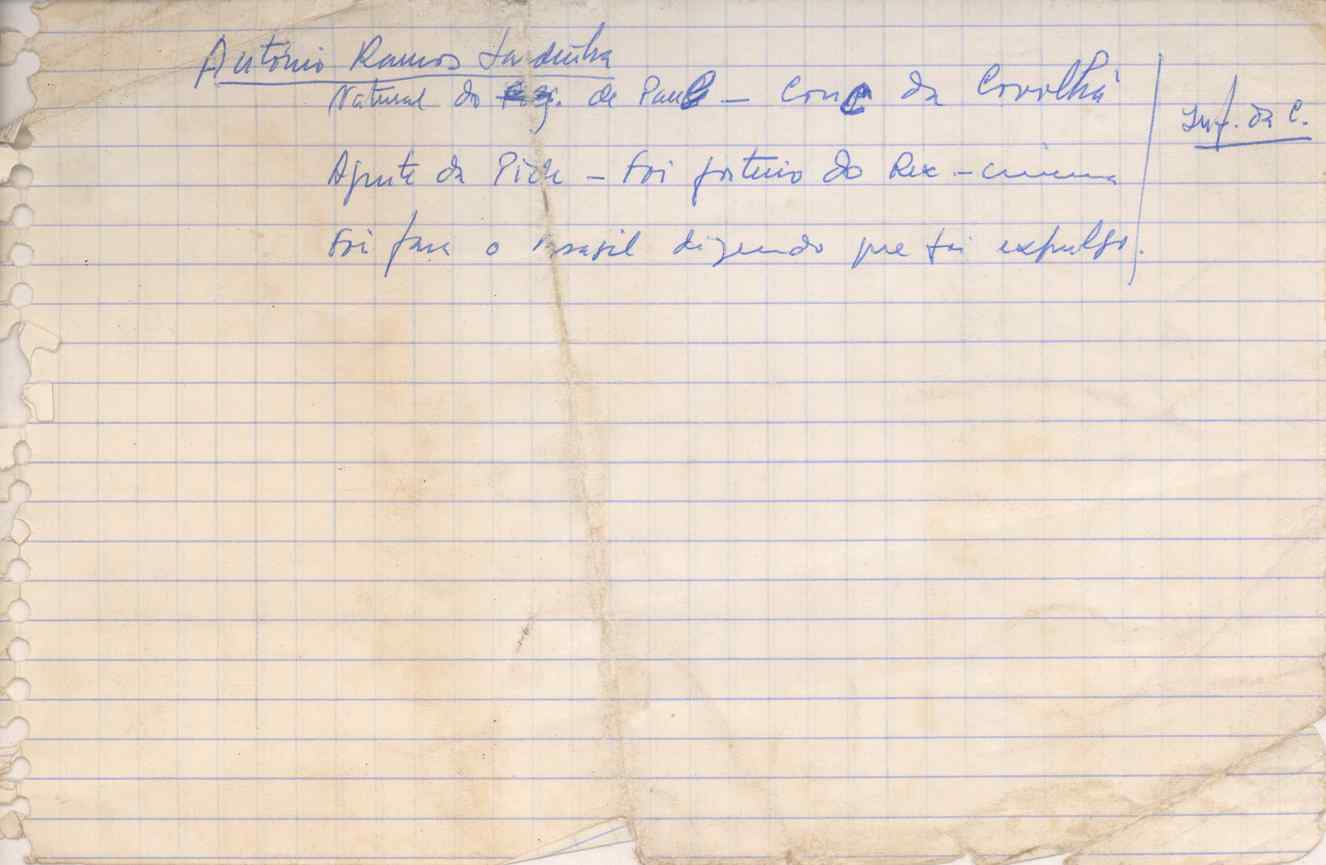 António Ramos Sardinha
Natural do de Paul – Conc da Covilhã
Inf. da C.
Agente da Pide – Foi porteiro do Rex – cinema
Foi para o Brasil dizendo que foi expulso.